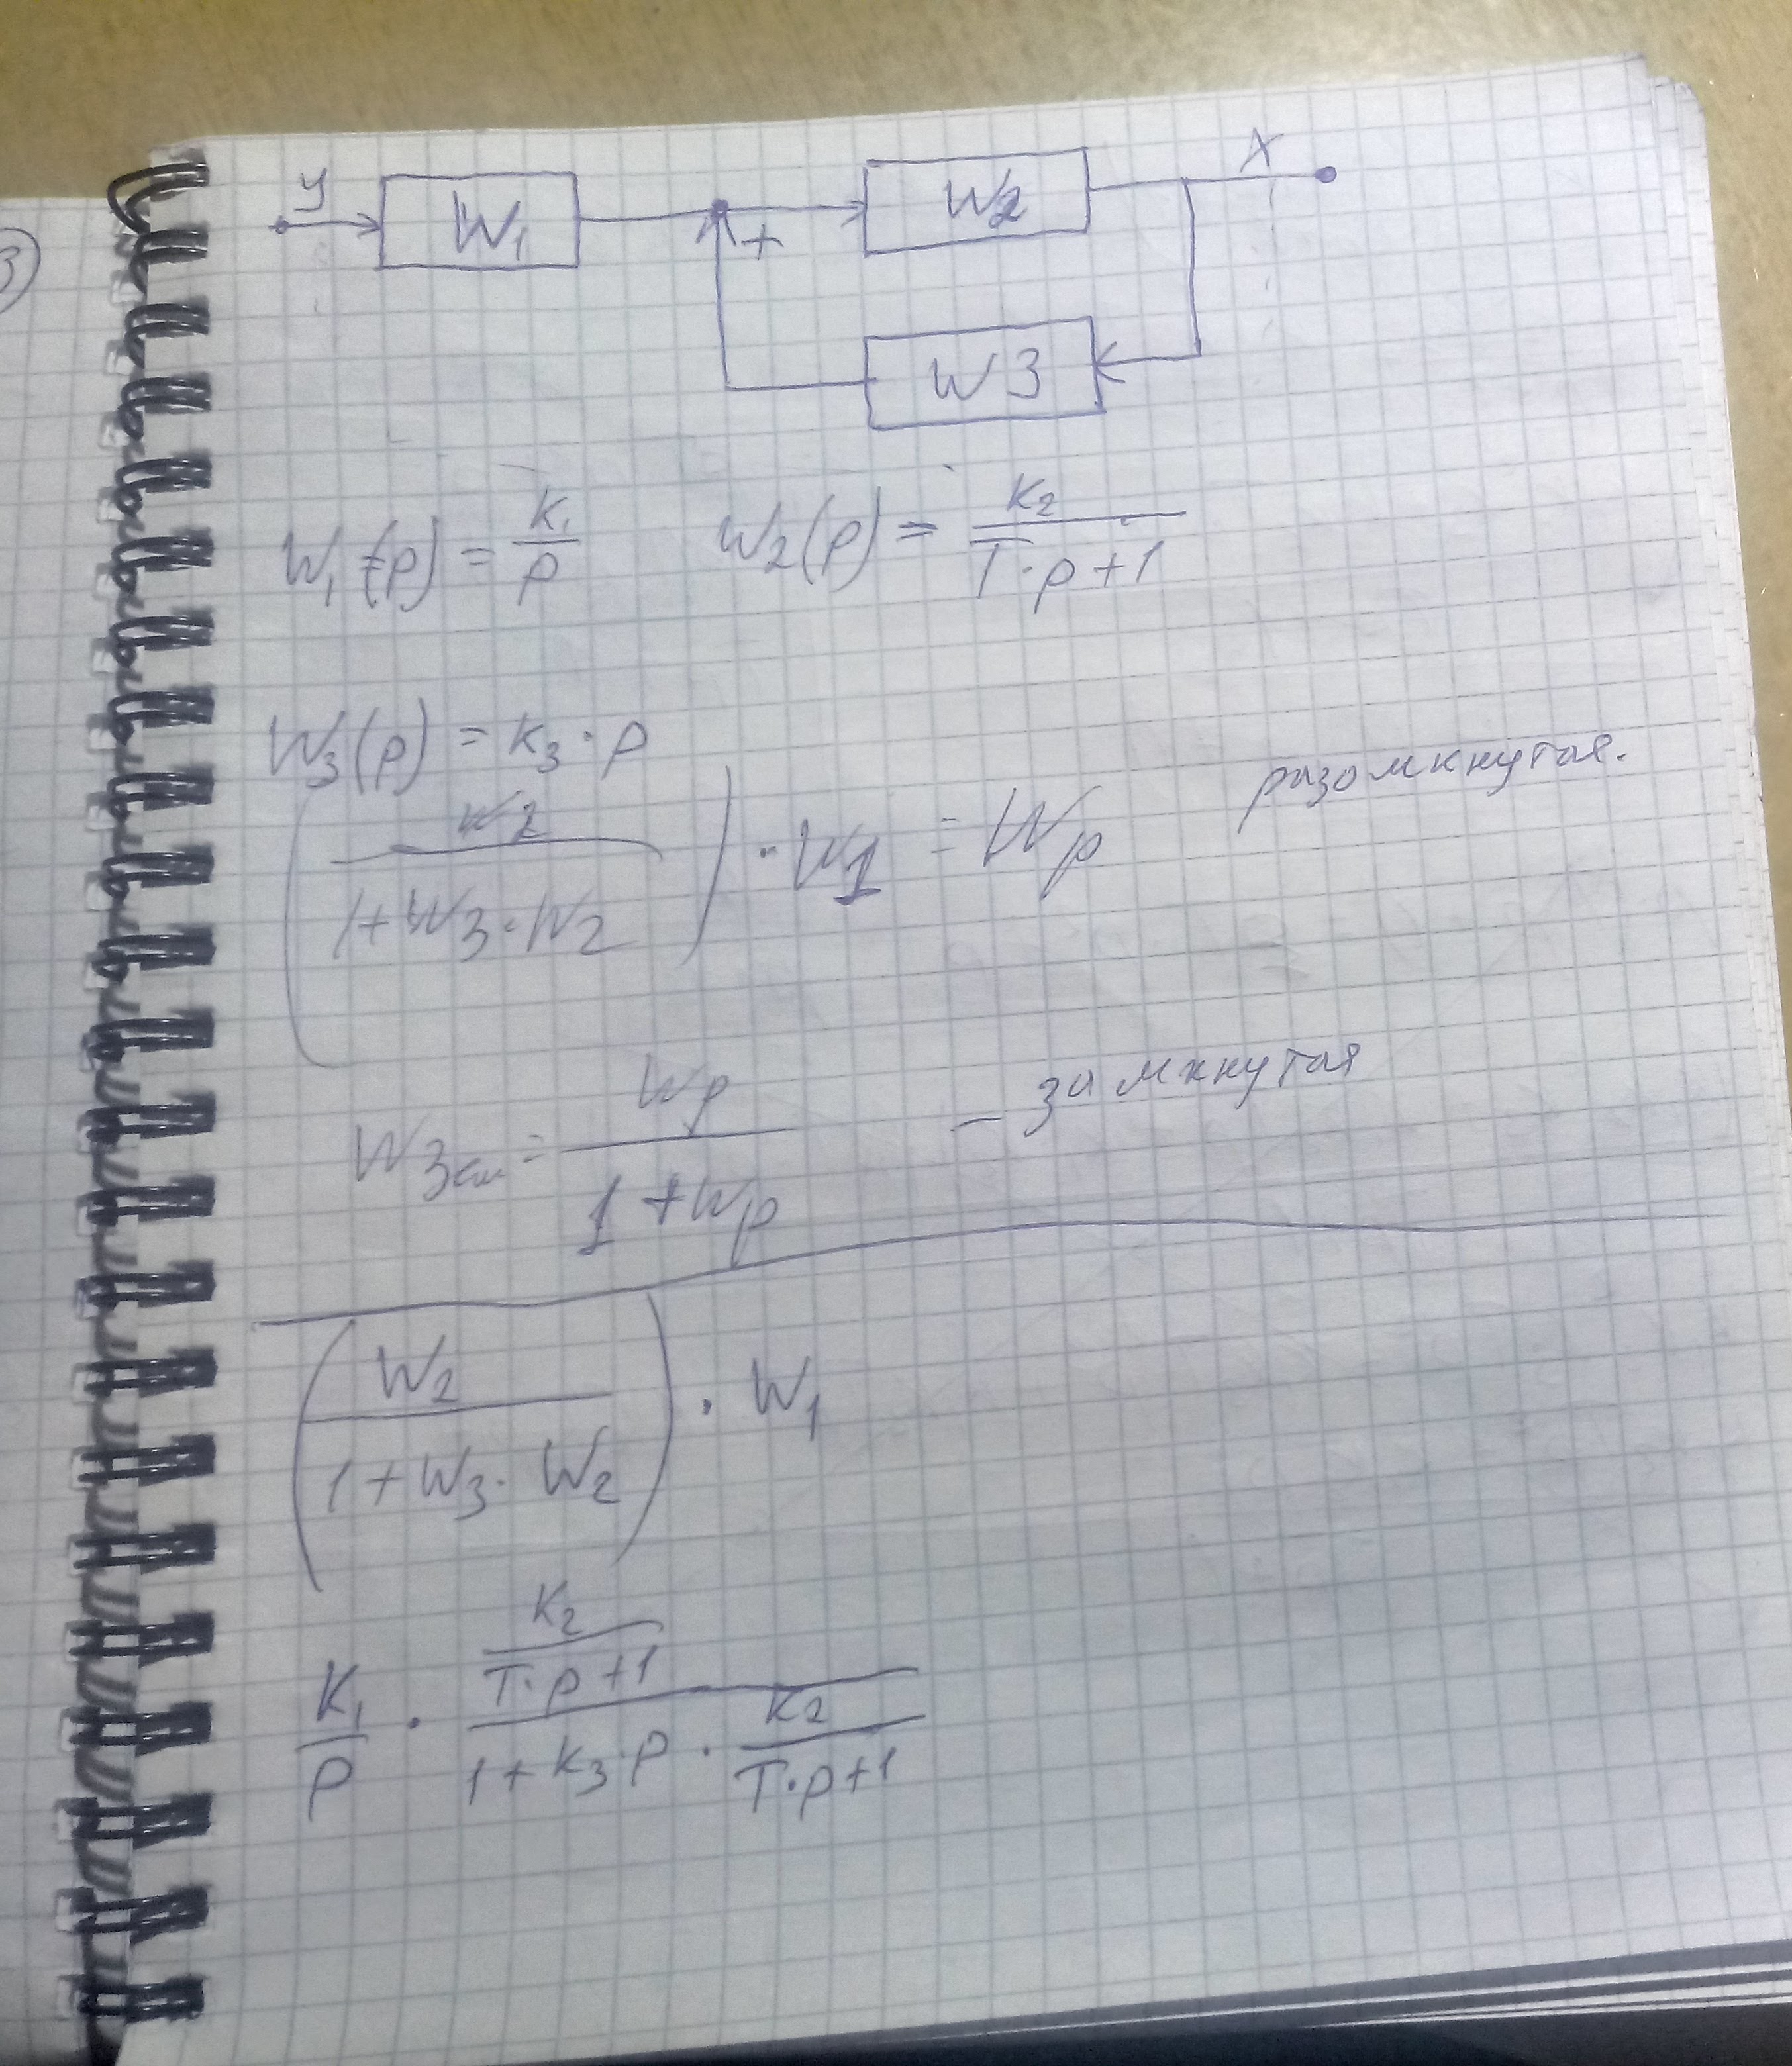 3
y W₁ + W2 X
W3
W₁(p) = K₁/p W₂(p) = K₂/(T·p+1)
W₃(p) = K₃·p
(W2/(1+W3·W2)) · W1 = Wp разомкнутая.
Wзам = Wp/(1+Wp) – замкнутая
(W₂/(1+W₃·W₂)) · W₁
K₁/p · (K₂/(T·p+1))/(1+K₃·p · K₂/(T·p+1))